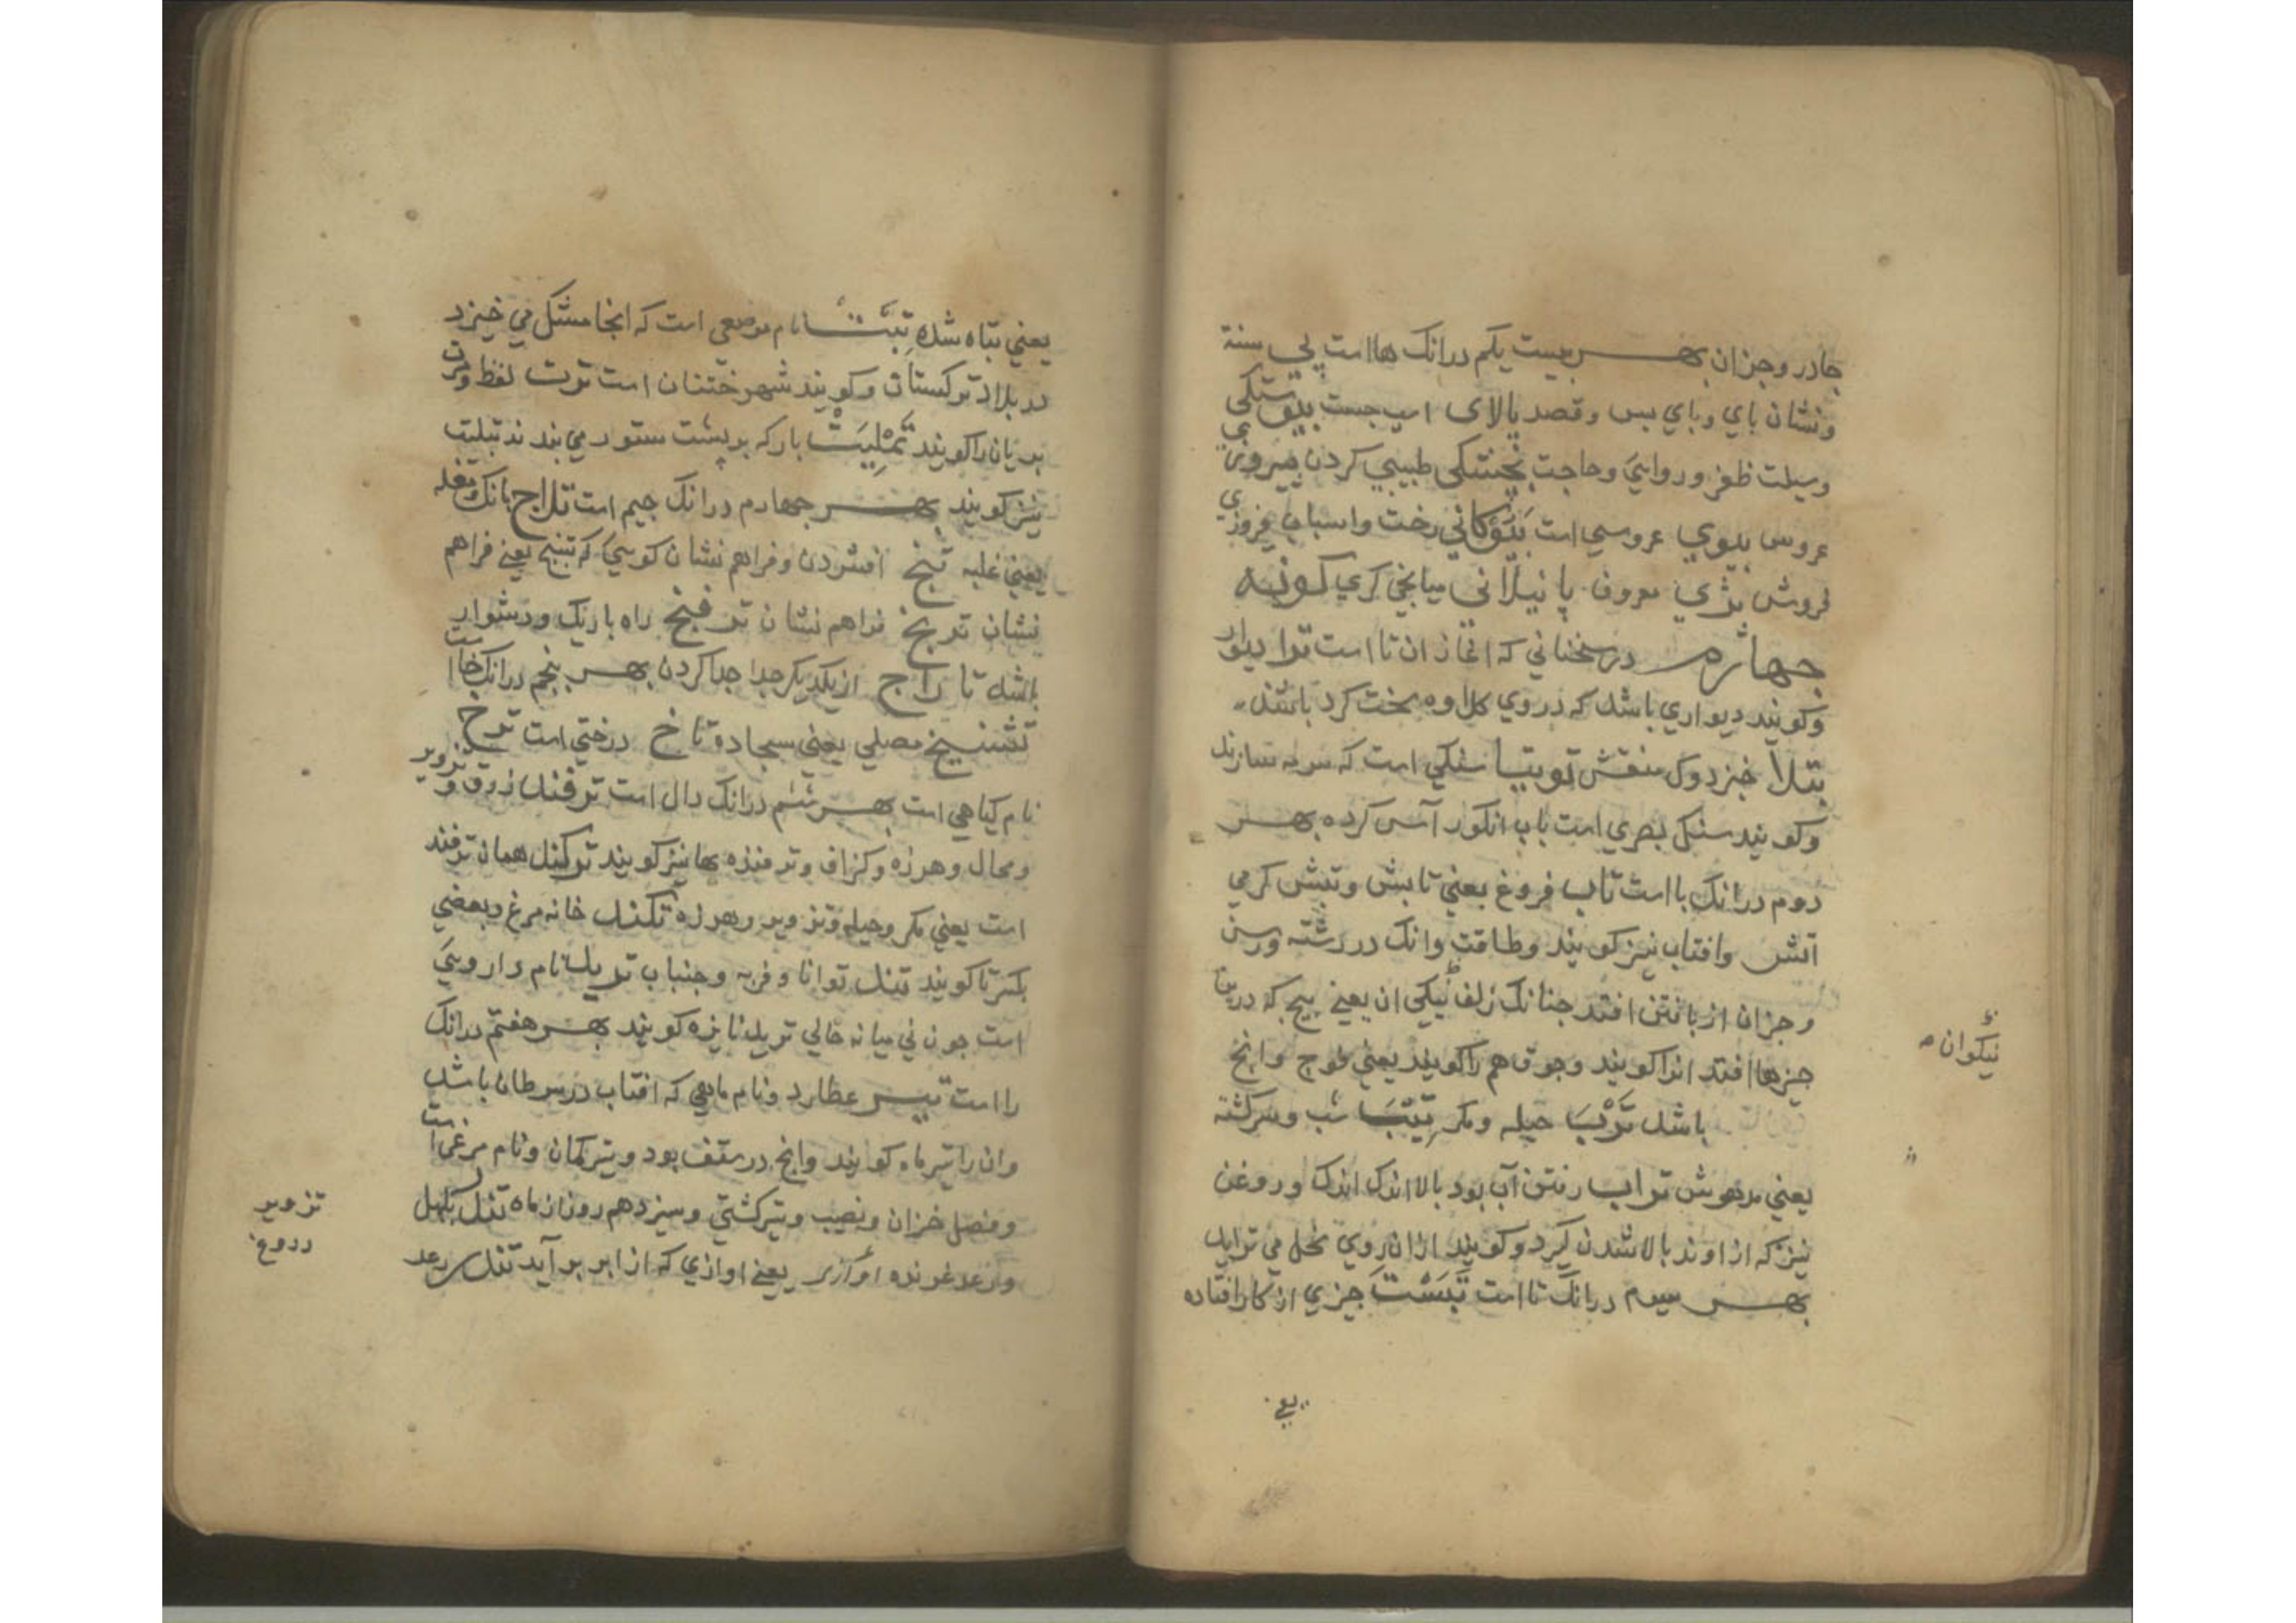 جادر وجزان بهر بیست یکم درانک ها است پی سنة
ونشان بای وبای بس وقصد بالای اسب جست بیوستکی
وسیلت ظفر وروایی وحاجت طبیبی کردن بیروزی
عروس بیوی عروسی است بیوکانی رخت واسباب فروزی
فروش بژی معروف میانجی کری کونه
جهارم درسخنانی که اغاز ان تا است ترا دیوار
وکویند دیواری باشد که در روی سخت کرد باشند
بتلا خبزدوک منقش توبتیا سنکی است که سرمه سازند
وکویند سنکی بصری است باب انکور آس کرده بهر
دوم درانک با است تاب فروغ یعنی تابش وتبش کرمی
آتش وافتاب نیز کویند وطاقت وانک در رشته ورسن
وجزان از بافتن افتد جنانک زلف نیکی ان یعنی بیج که در
جیزها افتد انرا کویند وجوق هم را کویند یعنی فوج وانج
باشد ترب حیله ومکر تیب شب وسرکشته
یعنی مدهوش تراب رفتن آب بود بالا اندک اندک وروغن
نیز که از اوند بالا شدن کیرد وکویند ازان روی می تراید
بهر سیوم درانک تا است تبست جیزی از کار افتاده
نیکوان
یعنی
یعنی تباه شده تبت نام موضعی است که انجا مشک می خیزد
در بلاد ترکستان وکویند شهر ختنان است توت لفظ وفرت
بریان را کویند تملیت بار که بر بشت ستور می بندند تبلیت
نیز کویند بهر جهارم درانک جیم است تلاج بانک ومغله
یعنی غلبه تنج افشردن وفراهم نشان کویی که تنج یعنی فراهم
نشان ترنج فراهم نشان ترفنج راه باریک ودشوار
باشد تاراج از یکدیکر جدا جدا کردن بهر بنجم درانک خا است
تشنیخ مصلی یعنی سجاده تاخ درختی است ترخ
نام کیاهی است بهر ششم درانک دال است ترفند زرق وتزویر
ومحال وهرزه وکزاف وترفنده ها نیز کویند ترکند همان ترفند
است یعنی مکر وحیله وتزویر وهرزه تکند خانه مرغ وبعضی
بکسر تا کویند تند توانا وفربه وجنباب ترید نام داروییَ
است جون نی میانه خالی ترید نایزه کویند بهر هفتم درانک
را است تیر عطارد ونام ماهی که افتاب در سرطان باشد
وان را تیر ماه کویند وانج در سقف بود وتیر کمان ونام مرغی است
وفصل خزان ونصیب وتیر کشتی وسیزدهم روز از ماه تندر بلبل
ورعد غرنده یعنی اوازی که از ابر بر آید تندر رعد
تزویر
دروغ